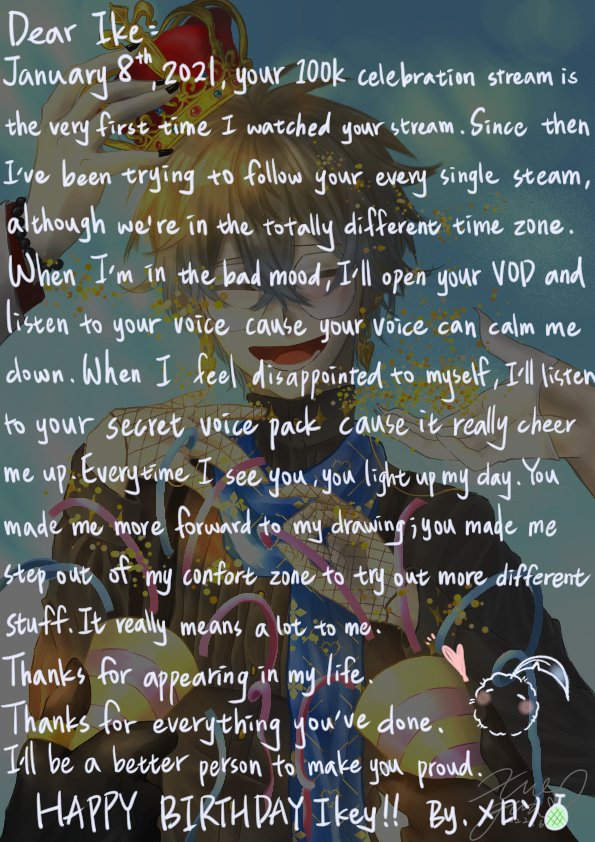 Dear Ike:
January 8th, 2021, your 100k celebration stream is
the very first time I watched your stream. Since then
I've been trying to follow your every single steam,
although we're in the totally different time zone.
When I'm in the bad mood, I'll open your VOD and
listen to your voice cause your voice can calm me
down. When I feel disappointed to myself, I'll listen
to your secret voice pack cause it really cheer
me up. Everytime I see you, you light up my day. You
made me more forward to my drawing; you made me
step out of my confort zone to try out more different
stuff. It really means a lot to me.
Thanks for appearing in my life.
Thanks for everything you've done.
I'll be a better person to make you proud.
HAPPY BIRTHDAY Ikey!! By. メロン